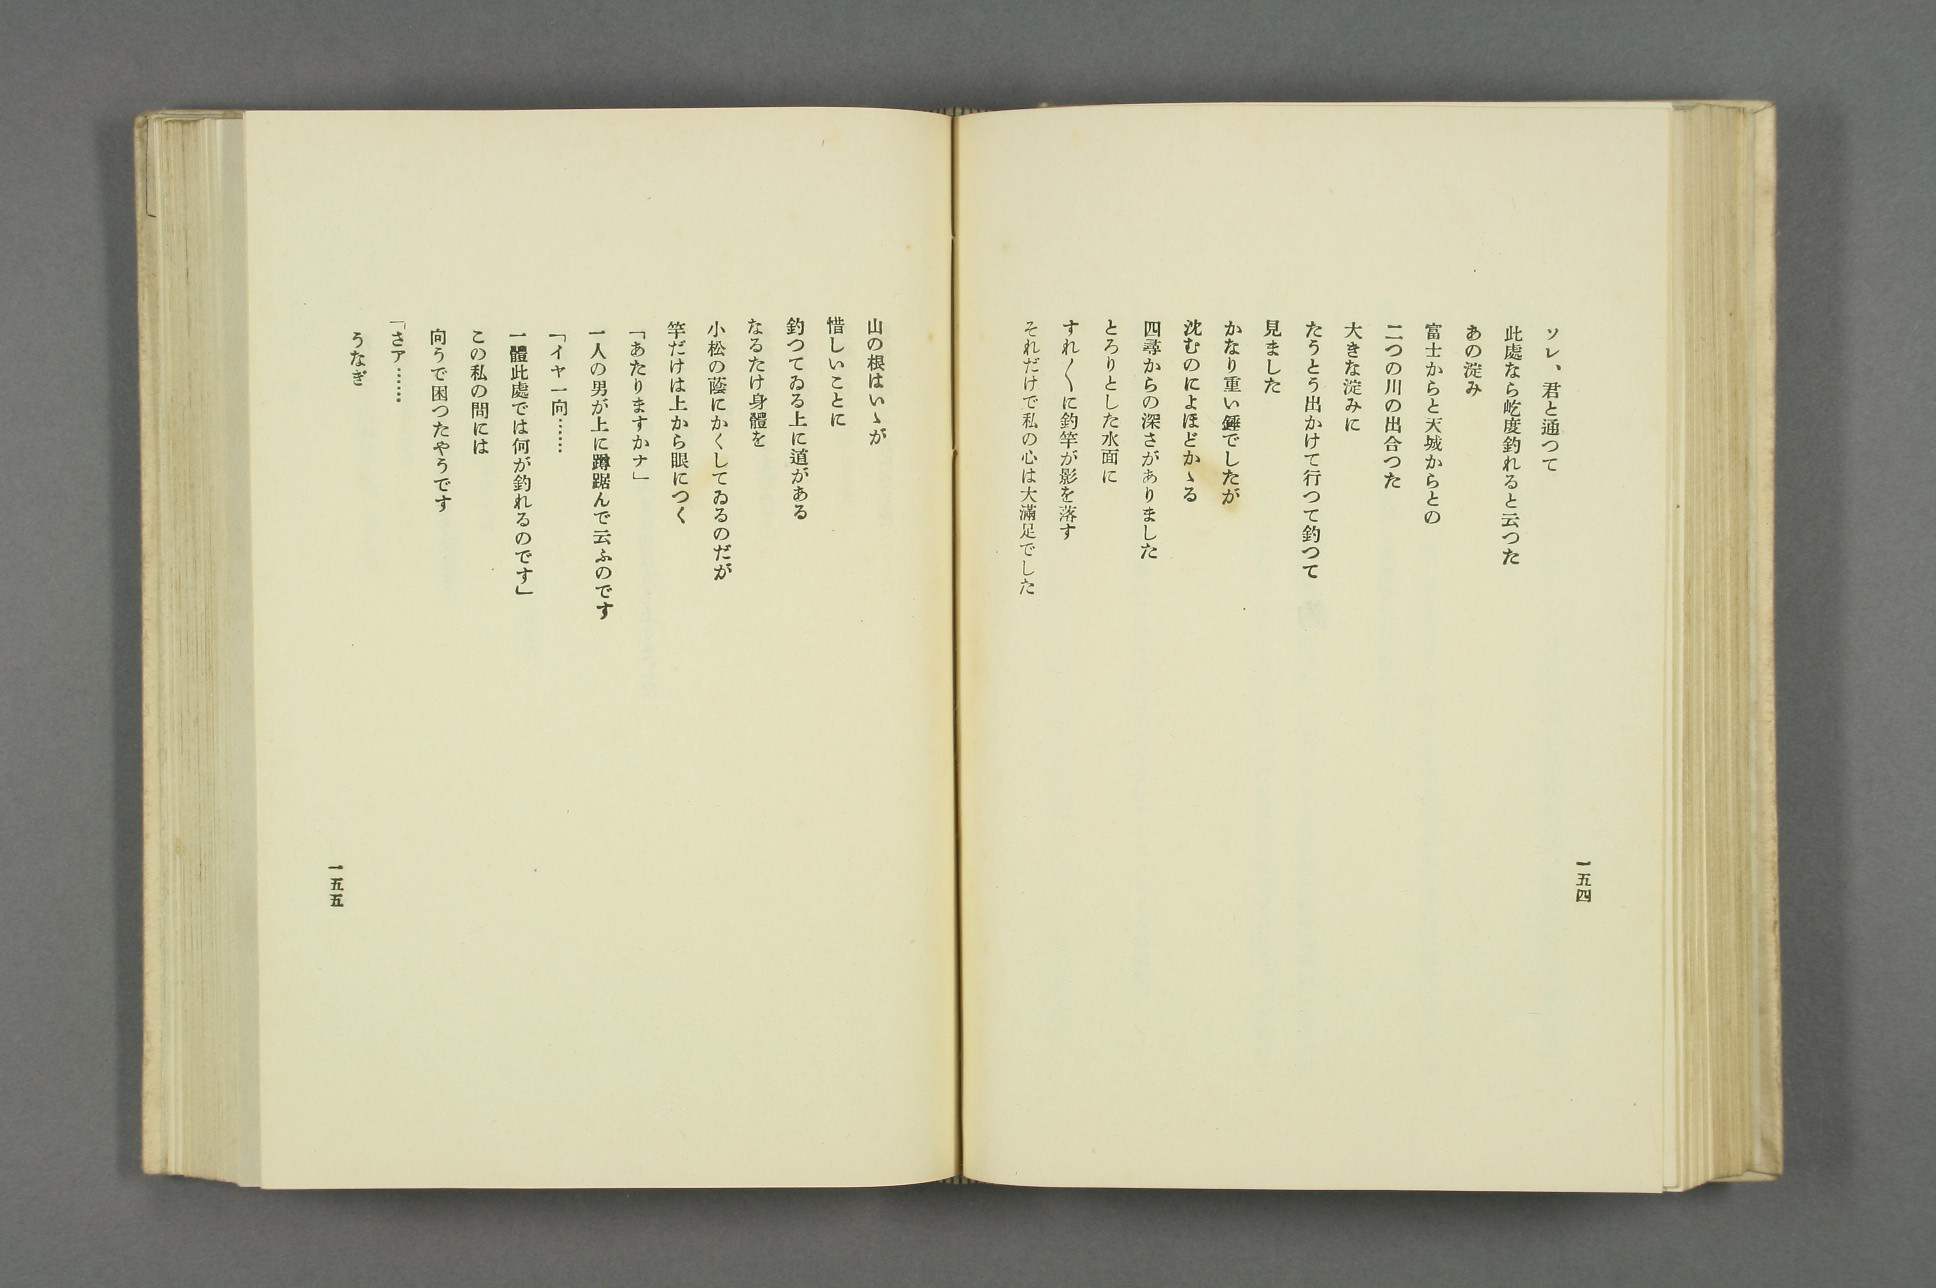 ソレ、君と通つて
此處なら屹度釣れると云つた
あの淀み
富士からと天城からとの
二つの川の出合つた
大きな淀みに
たうとう出かけて行つて釣つて
見ました
かなり重い錘でしたが
沈むのによほどかゝる
四尋からの深さがありました
とろりとした水面に
すれ〱に釣竿が影を落す
それだけで私の心は大滿足でした
一五四
山の根はいゝが
惜しいことに
釣つてゐる上に道がある
なるたけ身體を
小松の蔭にかくしてゐるのだが
竿だけは上から眼につく
「あたりますかナ」
一人の男が上に蹲踞んで云ふのです
「イヤ一向……
一體此處では何が釣れるのです」
この私の問には
向うで困つたやうです
「さア……
うなぎ
一五五